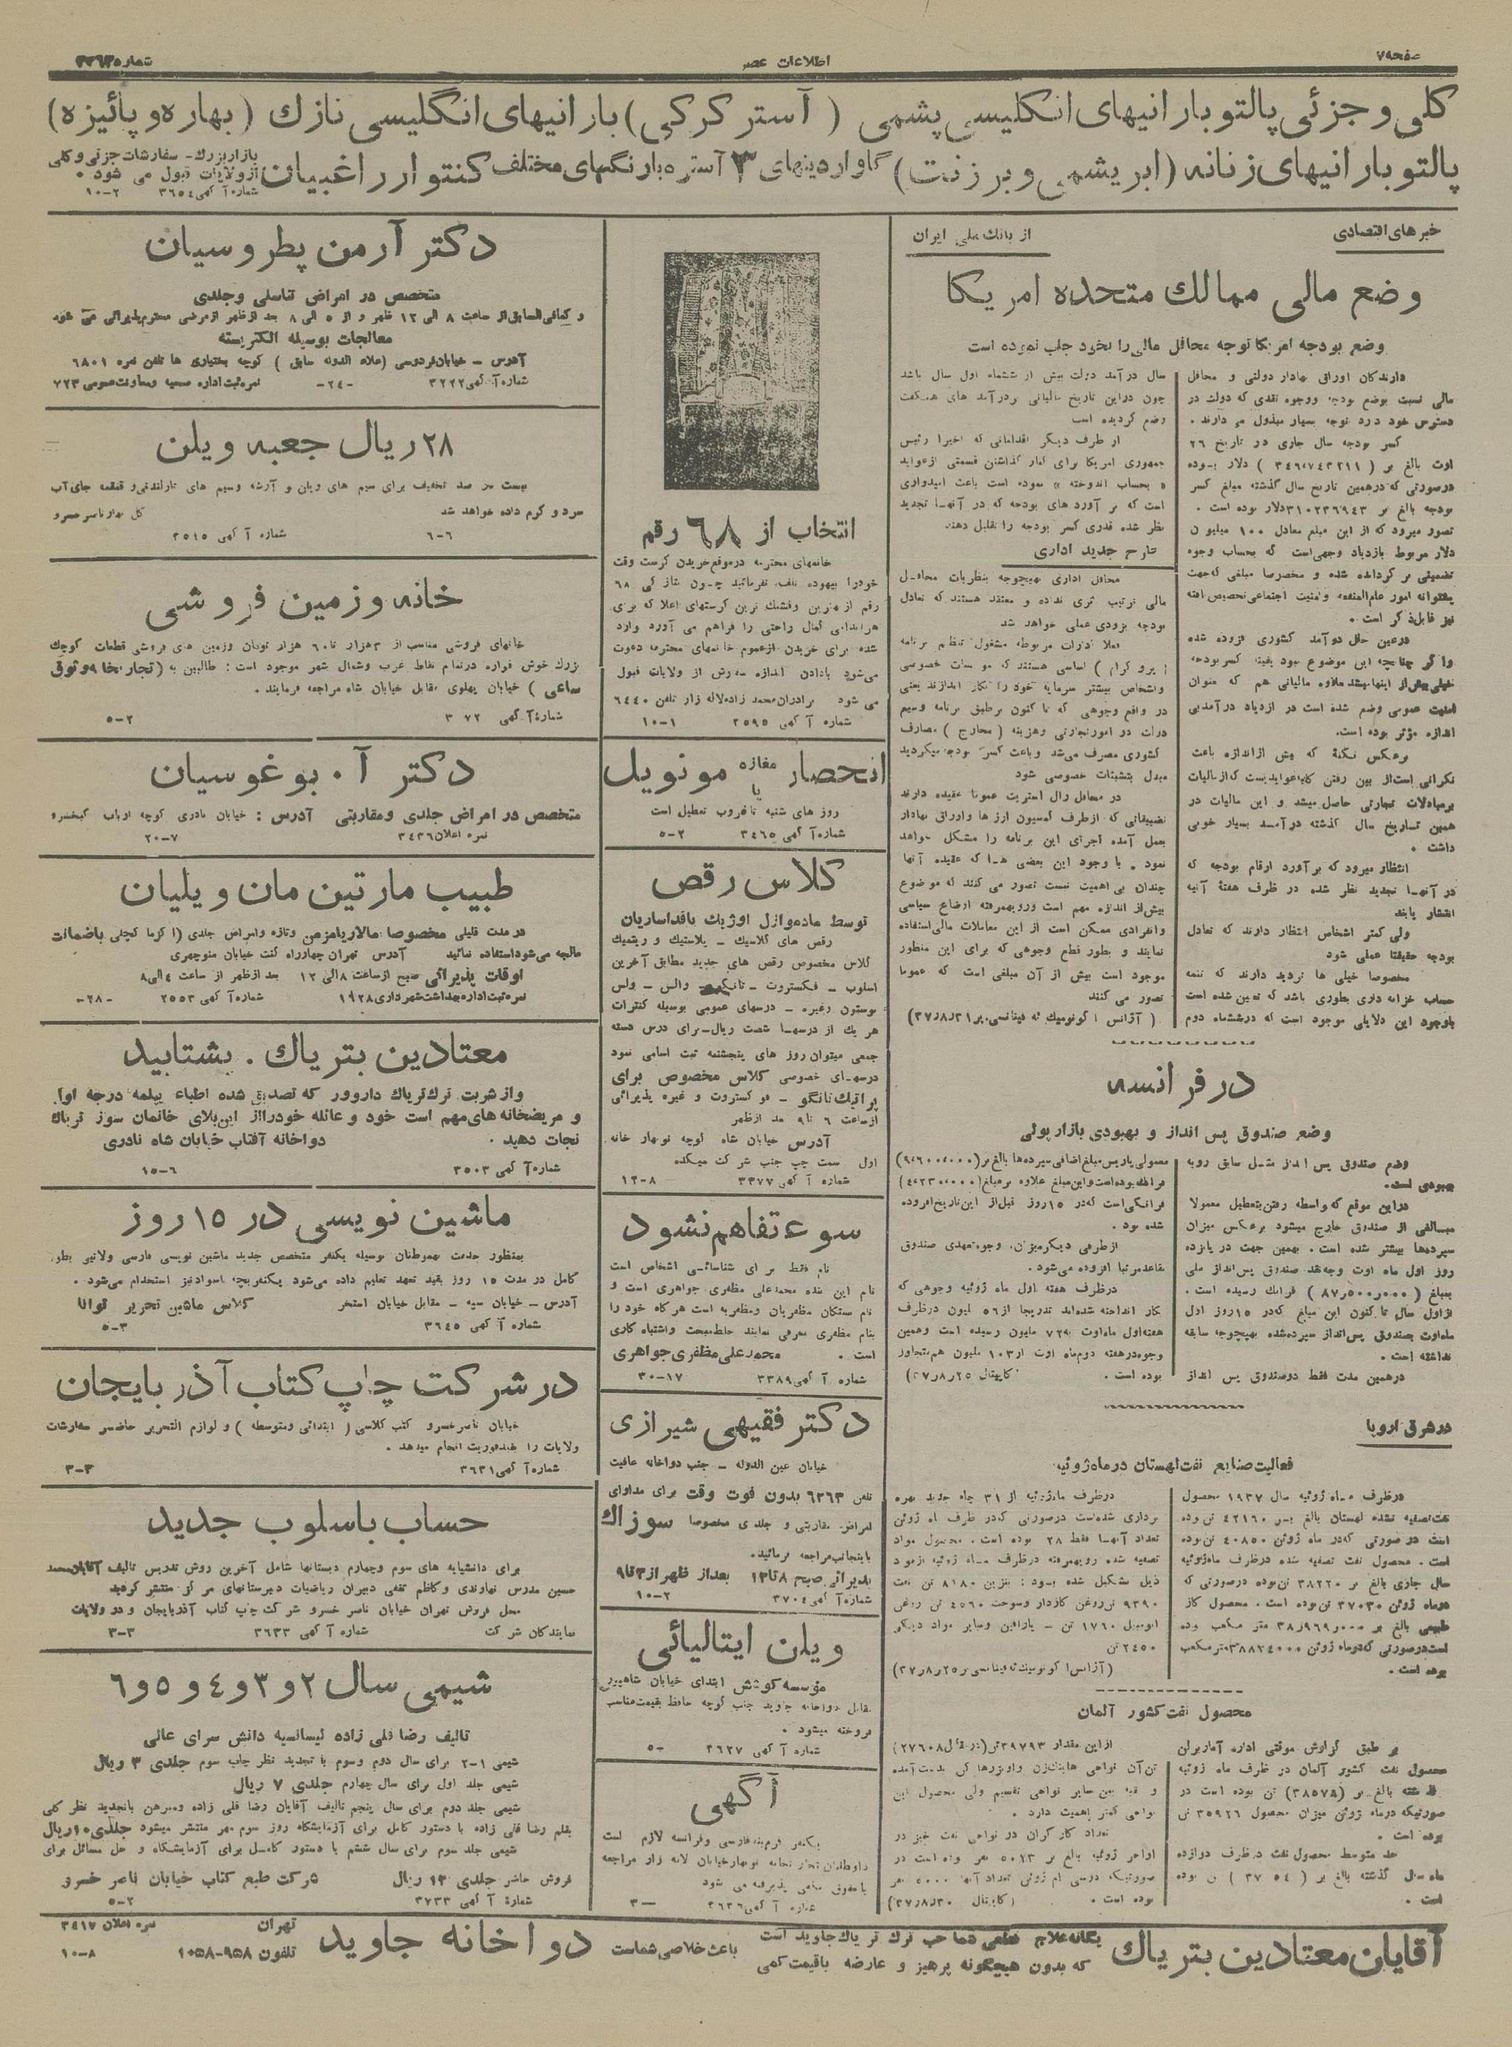 صفحه ۷
اطلاعات عصر
کلی و جزئی پالتو بارانیهای انگلیسی پشمی (آستر کرکی) بارانیهای انگلیسی نازك (بهاره و پائیزه)
پالتو بارانیهای زنانه (ابریشمی و برزنت) گاواردینهای ۳ آستره بارنگهای مختلف کنتوار راغبیان
بازار بزرك - سفارشات جزئی و کلی
از ولایات قبول می شود .
شماره آگهی ۳۶۵۴ ۲-۱۰
خبرهای اقتصادی
از بانك ملی ایران
وضع مالی ممالك متحده امریکا
وضع بودجه امریکا توجه محافل مالی را بخود جلب نموده است
دارندگان اوراق بهادار دولتی و محافل
مالی نسبت بوضع بودجه ووجوه نقدی که دولت در
دسترس خود دارد توجه بسیار مبذول می دارند .
کسر بودجه سال جاری در تاریخ ۲۶
اوت بالغ بر ( ۳۴۶،۷۴۳۲۱۱ ) دلار بوده
درصورتی که درهمین تاریخ سال گذشته مبلغ کسر
بودجه بالغ بر ۳۱۰۲۳۶۹۴۳ دلار بوده است .
تصور میرود که از این مبلغ معادل ۱۰۰ میلیون
دلار مربوط بازدیاد وجهی است که بحساب وجوه
تضمینی بر گردانده شده و مخصوصا مبلغی که جهت
نیز قابل ذکر است .
درعین حال درآمد کشوری افزوده شده
امنیت عمومی وضع شده است در ازدیاد درآمد بی
اندازه مؤثر بوده است.
برعکس نکتهٔ که بیش ازاندازه باعث
نگرانی است از بین رفتن کلیه عوایدیست که ازمالیات
برمبادلات تجارتی حاصل میشد و این مالیات در
همین تاریخ سال گذشته درآمد بسیار خوبی
داشت .
انتظار میرود که برآورد ارقام بودجه که
در آنها تجدید نظر شده در ظرف هفتهٔ آتیه
انتشار یابند
ولی کمتر اشخاص انتظار دارند که تعادل
بودجه حقیقتا عملی شود
مخصوصا خیلی ها تردید دارند که تتمه
حساب خزانه داری بطوری باشد که تعیین شده است
باوجود این دلایلی موجود است که درششماه دوم
سال درآمد دولت بیش از ششماه اول سال باشد
چون دراین تاریخ مالیاتی بردرآمد های هنگفت
وضع گردیده است
از طرف دیگر اقداماتی که اخیرا رئیس
جمهوری امریکا برای کنار گذاشتن قسمتی ازعواید
« بحساب اندوخته » نموده است باعث امیدواری
است که بر آورد های بودجه که در آنها تجدید
نظر شده قدری کسر بودجه را تقلیل دهند
خارج جدید اداری
محافل اداری بهیچوجه بنظریات محافل
مالی ترتیب اثری نداده و معتقد هستند که تعادل
بودجه بزودی عملی خواهد شد
فعلا ادارات مربوطه مشغول تنظیم برنامه
( پروگرام ) اساسی هستند که موسسات خصوصی
واشخاص بیشتر سرمایه خود را بکار اندازند یعنی
در واقع وجوهی که تا کنون برطبق برنامه وسیع
دولت در امورتجارتی وهزینه ( مخارج ) مصارف
کشوری مصرف می‌شد و باعث کسر بودجه میگردید
مبدل بتشبثات خصوصی شود
در محافل وال استریت عموما عقیده دارند
تضییقاتی که ازطرف کمسیون ارز ها واوراق بهادار
بعمل آمده اجرای این برنامه را مشکل خواهد
نمود . با وجود این بعضی ها که عقیده آنها
چندان بی اهمیت نیست تصور می کنند که موضوع
بیش از اندازه مهم است ورویهمرفته اوضاع سیاسی
وانفرادی ممکن است از این معاملات مالی استفاده
نمایند و بطور قطع وجوهی که برای این منظور
موجود است بیش از آن مبلغی است که عموما
تصور می کنند
( آژانس اکونومیك ئه فینانسی‌یر ۳۷٫۸٫۳۱)
در فرانسه
وضع صندوق پس انداز و بهبودی بازار پولی
وضع صندوق پس انداز مثل سابق روبه
بهبودی است.
دراین موقع که واسطه رفتن بتعطیل معمولا
مبالغی از صندوق خارج میشود برعکس میزان
سپرده‌ها بیشتر شده است . بهمین جهت در پانزده
روز اول ماه اوت وجه نقد صندوق پس‌انداز ملی
بمبلغ (۸۷٫۵۰۰٫۰۰۰ ) فرانك رسیده است .
ازاول سال تا کنون این مبلغ که در ۱۵ روز اول
ماه‌اوت بصندوق پس‌انداز سپرده‌شده بهیچوجه سابقه
نداشته است .
درهمین مدت فقط درصندوق پس انداز
فرانکی است که در ۱۵ روز قبل از این تاریخ افزوده
شده بود .
ازطرفی دیگر میزان وجوه تعهدی صندوق
تقاعد مرتبا افزوده می‌شود.
درظرف هفته اول ماه ژوئیه وجوهی که
بکار انداخته شده‌اند تدریجا از ۵۶ ملیون درظرف
هفته اول ماه‌اوت به ۷۲ ملیون رسیده است وهمین
وجوه درهفته دوم ماه اوت از ۱۰۳ ملیون هم‌متجاوز
بوده است . (کاپیتال ۳۷٫۸٫۲۵)
در شرق اروپا
فعالیت صنایع نفت لهستان در ماه ژوئیه
درظرف ماه ژوئیه سال ۱۹۳۷ محصول
نفت تصفیه نشده لهستان بالغ بر ۴۲۱۶۰ تن بوده
است در صورتی که در ماه ژوئن ۴۰۸۵۰ تن بوده
است . محصول نفت تصفیه شده درظرف ماه ژوئیه
سال جاری بالغ بر ۳۸۲۲۰ تن بوده درصورتی که
درماه ژوئن ۳۷۰۳۰ تن بوده است . محصول گاز
طبیعی بالغ بر ۳۸٫۹۶۹٫۰۰۰ متر مکعب بوده
است درصورتی که درماه ژوئن ۳۸۸۲۴۰۰۰ متر مکعب
بوده است .
درظرف ماه ژوئیه از ۳۱ چاه جدید بهره
برداری شده است درصورتی که در ظرف ماه ژوئن
تعداد آنها فقط ۲۸ بوده است . محصول مواد
تصفیه شده رویهمرفته درظرف ماه ژوئیه ازمواد
ذیل تشکیل شده بود : بنزین ۸۱۸۰ تن نفت
۹۳۹۰ تن روغن گازدار وسوخت ۴۵۶۰ تن روغن
اتومبیل ۱۷۶۰ تن - پارافین وسایر مواد دیگر
۲۴۵۰ تن
(آژانس اکونومیك ئه فینانسی‌یر ۳۷٫۸٫۲۵)
محصول نفت کشور آلمان
بر طبق گزارش موقتی اداره آمار برلن
محصول نفت کشور آلمان در ظرف ماه ژوئیه
گذشته بالغ بر (۳۸۵۷۴) تن بوده است در
صورتیکه درماه ژوئن میزان محصول ۳۵۹۲۶ تن
بوده است .
حد متوسط محصول نفت در ظرف دوازده
ماه سال گذشته بالغ بر ( ۳۷۰۵۴ ) تن بوده
است .
تن آن نواحی هاینیگزن واوبرژها کن بدست آمده
و بقیه بین سایر نواحی تقسیم ولی محصول این
نواحی کمتر اهمیت دارد .
تعداد کارگران در نواحی نفت خیز در
اواخر ژوئیه بالغ بر ۵۰۱۳ نفر بوده است در
بوده است . (کاپیتال ۳۷٫۸٫۳۰)
انتخاب از ۶۸ رقم
خانمهای محترمه درموقع خریدن کرست وقت
خودرا بیهوده تلف نفرمائید چون مغازه کی ۶۸
رقم از بهترین وقشنك ترین کرستهای اعلا که برای
هر اندامی کمال راحتی را فراهم می آورد وارد
شده برای خریدن ازعموم خانمهای محترمه دعوت
می‌شود بادادن اندازه سفارش از ولایات قبول
می شود برادران محمد زاده لاله زار تلفن ۶۴۴۰
شماره آگهی ۲۵۹۵ ۱-۱۰
انحصار مغازه یا مونویل
روز های شنبه تا غروب تعطیل است
شماره آگهی ۳۴۶۵ ۲-۵
کلاس رقص
توسط مادموازل اوژیك بافداساریان
رقص های کلاسیك - پلاستیك و ریتمیك
کلاس مخصوص رقص های جدید مطابق آخرین
اسلوب - فکستروت - تانگو - والس - ولس
بوستون وغیره - درسهای عمومی بوسیله کنترات
هر یك از درسها شصت ریال-برای درس دسته
جمعی میتوان روز های پنجشنبه ثبت اسامی نمود
درسهای خصوصی کلاس مخصوص برای
پراتیك تانگو - فوکستروت و غیره پذیرائی
ازساعت ۶ تا ۹ بعد ازظهر
آدرس خیابان شاه کوچه نوبهار خانه
اول سمت چپ جنب شرکت میکده
شماره آگهی ۳۳۷۷ ۸-۱۲
سوء تفاهم نشود
نام فقط برای شناسائی اشخاص است
نام این بنده محمدعلی مظفری جواهری است و
نام بستگان مظفریان ومظفریه است هرگاه خود را
بنام مظفری معرفی نمایند خلط مبحث واشتباه کاری
است . محمدعلی مظفری جواهری
شماره آگهی ۳۳۸۹ ۱۷-۳۰
دکتر فقیهی شیرازی
خیابان عین الدوله - جنب دواخانه عافیت
تلفن ۶۲۶۳ بدون فوت وقت برای مداوای
امراض مقاربتی و جلدی مخصوصا سوزاك
باینجانب مراجعه فرمائید.
پذیرائی صبح ۸ تا ۱۲ بعد از ظهر از ۳ تا ۹
شماره آگهی ۳۷۰۴ ۲-۱۰
ویلن ایتالیائی
مؤسسه کوشش ابتدای خیابان شاهپور
مقابل دواخانه جاوید جنب کوچه حافظ بقیمت مناسب
فروخته میشود .
شماره آگهی ۳۶۲۷
آگهی
یکنفر مترجم فارسی وفرانسه لازم است
داوطلبان تجارتخانه نوبهار خیابان لاله زار مراجعه
باحقوق مکفی پذیرفته می شود
دکتر آرمن پطروسیان
متخصص در امراض تناسلی وجلدی
و کمافی‌السابق از ساعت ۸ الی ۱۲ ظهر و از ۵ الی ۸ بعد ازظهر ازمرضی محترم پذیرائی می شود
معالجات بوسیله الکتریسته
آدرس - خیابان فردوسی (علاء الدوله سابق ) کوچه بختیاری ها تلفن نمره ۶۸۰۱
شماره آگهی ۳۲۲۲ -۲۴- نمره ثبت اداره صحیه ومعاونت عمومی ۷۲۳
۲۸ ریال جعبه ویلن
بیست در صد تخفیف برای سیم های ویلن و آرشه وسیم های تارلندنی و قمقمه جای آب
سرد و گرم داده خواهد شد کل بهار ناصر خسرو
شماره آگهی ۳۵۱۵ ۶-۶
خانه و زمین فروشی
خانهای فروشی مناسب از ۳ هزار تا ۶۰ هزار تومان وزمین های فروشی قطعات کوچك
بزرك خوش قواره درتمام نقاط غرب وشمال شهر موجود است : طالبین به (تجارتخانه وثوق
ساعی ) خیابان پهلوی مقابل خیابان شاه مراجعه فرمایند .
۲-۵
دکتر آ . بوغوسیان
متخصص در امراض جلدی ومقاربتی آدرس : خیابان نادری کوچه ارباب کیخسرو
نمره اعلان ۳۴۳۶ ۷-۲۰
طبیب مارتین مان ویلیان
در مدت قلیلی مخصوصا مالاریا مزمن وتازه وامراض جلدی (اکزما کچلی باضمانت
معالجه می‌شود استفاده نمائید آدرس تهران چهارراه کنت خیابان منوچهری
اوقات پذیرائی صبح ازساعت ۸ الی ۱۲ بعد ازظهر از ساعت ۴ الی ۸
نمره ثبت اداره بهداشت شهرداری ۱۹۲۸ شماره آگهی ۲۵۵۳ -۲۸-
معتادین بتریاك . بشتابید
واز شربت ترك تریاك داروور که تصدیق شده اطباء دیپلمه درجه اول
و مریضخانه های مهم است خود و عائله خودرا از این بلای خانمان سوز تریاك
نجات دهید . دواخانه آفتاب خیابان شاه نادری
شماره آگهی ۳۵۰۳ ۶-۱۵
ماشین نویسی در ۱۵ روز
بمنظور خدمت بهموطنان بوسیله یکنفر متخصص جدید ماشین نویسی فارسی ولاتین بطور
کامل در مدت ۱۵ روز بقید تعهد تعلیم داده می‌شود یکنفر بچه باسواد نیز استخدام می‌شود .
آدرس - خیابان سپه - مقابل خیابان استخر کلاس ماشین تحریر توانا
شماره آگهی ۳۶۴۵ ۳-۵
در شرکت چاپ کتاب آذربایجان
خیابان ناصر خسرو کتب کلاسی ( ابتدائی ومتوسطه ) و لوازم التحریر حاضر سفارشات
ولایات را بقید فوریت انجام میدهد .
شماره آگهی ۳۶۳۱ ۳-۳
حساب باسلوب جدید
برای دانشپایه های سوم وچهارم دبستانها شامل آخرین روش تدریس تالیف آقایان محمد
حسین مدرس نهاوندی وکاظم ثقفی دبیران ریاضیات دبیرستانهای مرکز منتشر گردید
محل فروش تهران خیابان ناصر خسرو شرکت چاپ کتاب آذربایجان و در ولایات
نمایندگان شرکت شماره آگهی ۳۶۳۳ ۳-۳
شیمی سال ۲ و ۳ و ۴ و ۵ و ۶
تالیف رضا قلی زاده لیسانسیه دانش سرای عالی
شیمی ۱-۲ برای سال دوم وسوم با تجدید نظر چاپ سوم جلدی ۳ ریال
شیمی جلد اول برای سال چهارم جلدی ۷ ریال
شیمی جلد دوم برای سال پنجم تالیف آقایان رضا قلی زاده ومبرهن باتجدید نظر کلی
بقلم رضا قلی زاده با دستور کامل برای آزمایشگاه روز سوم مهر منتشر میشود جلدی ۱۰ ریال
شیمی جلد سوم برای سال ششم با دستور کامل برای آزمایشگاه و حل مسائل برای
فروش حاضر جلدی ۱۲ ریال شرکت طبع کتاب خیابان ناصر خسرو
شمارهٔ آگهی ۳۷۳۳ ۲-۵
آقایان معتادین بتریاك
یگانه علاج قطعی شما حب ترك تریاك جاوید است
که بدون هیچگونه پرهیز و عارضه باقیمت کمی
باعث خلاصی شماست
دواخانه جاوید
تهران
تلفون ۹۵۸-۱۰۵۸
نمره اعلان ۳۴۱۷
۸-۱۰